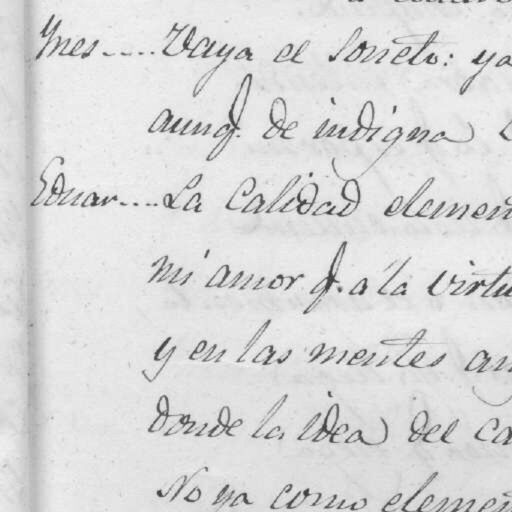 Ynes.... Vaya el Soneto: ya
aunq. de indigna
Eduar.... La Calidad elemen
mi amor q. a la virtu
y en las mentes an
donde la idea del ca
No ya como elemen